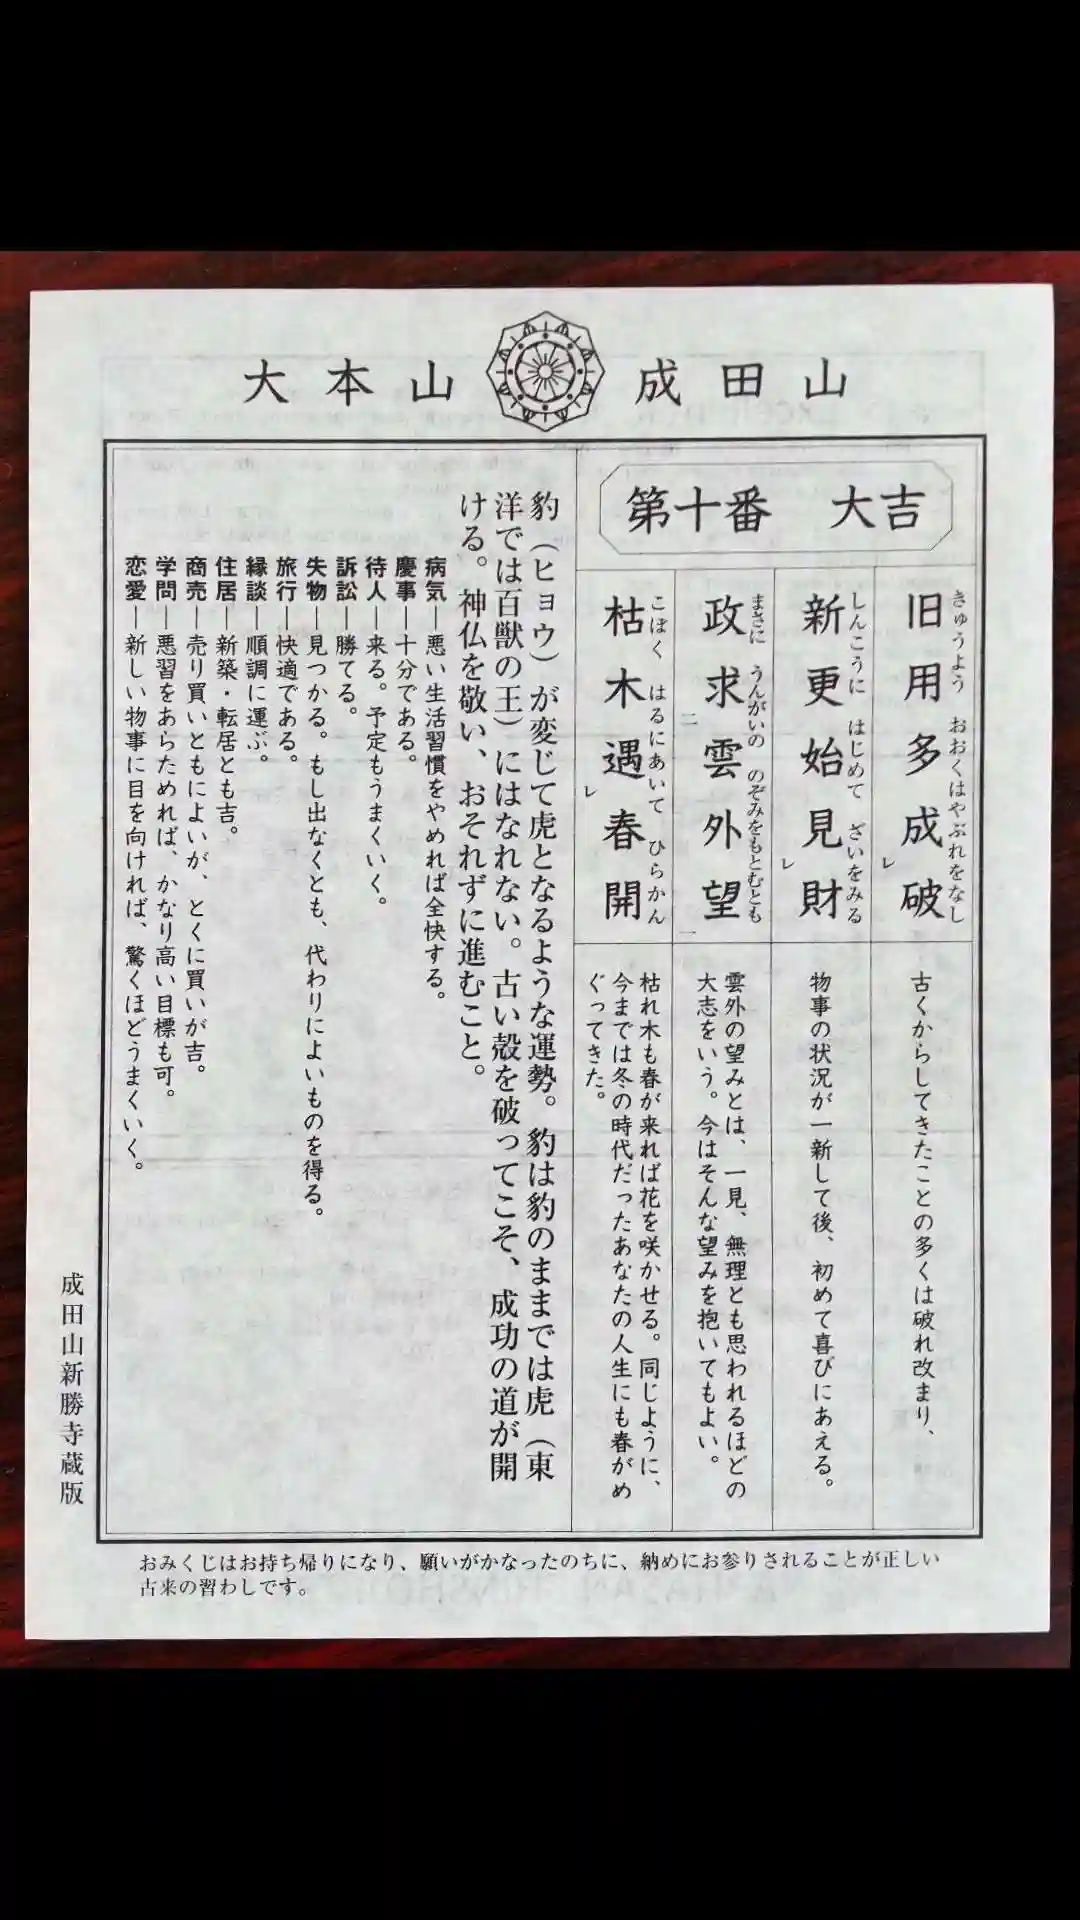 大本山 成田山
第十番 大吉
旧用多成破
きゅうよう おおくはやぶれをなし
レ
古くからしてきたことの多くは破れ改まり、
新更始見財
しんこうに はじめて ざいをみる
レ
物事の状況が一新して後、初めて喜びにあえる。
政求雲外望
まさに うんがいの のぞみをもとむとも
二 一
雲外の望みとは、一見、無理とも思われるほどの
大志をいう。今はそんな望みを抱いてもよい。
枯木遇春開
こぼく はるにあいて ひらかん
レ
枯れ木も春が来れば花を咲かせる。同じように、
今までは冬の時代だったあなたの人生にも春がめ
ぐってきた。
豹（ヒョウ）が変じて虎となるような運勢。豹は豹のままでは虎（東
洋では百獣の王）にはなれない。古い殻を破ってこそ、成功の道が開
ける。神仏を敬い、おそれずに進むこと。
病気―悪い生活習慣をやめれば全快する。
慶事―十分である。
待人―来る。予定もうまくいく。
訴訟―勝てる。
失物―見つかる。もし出なくとも、代わりによいものを得る。
旅行―快適である。
縁談―順調に運ぶ。
住居―新築・転居とも吉。
商売―売り買いともによいが、とくに買いが吉。
学問―悪習をあらためれば、かなり高い目標も可。
恋愛―新しい物事に目を向ければ、驚くほどうまくいく。
成田山新勝寺蔵版
おみくじはお持ち帰りになり、願いがかなったのちに、納めにお参りされることが正しい
古来の習わしです。